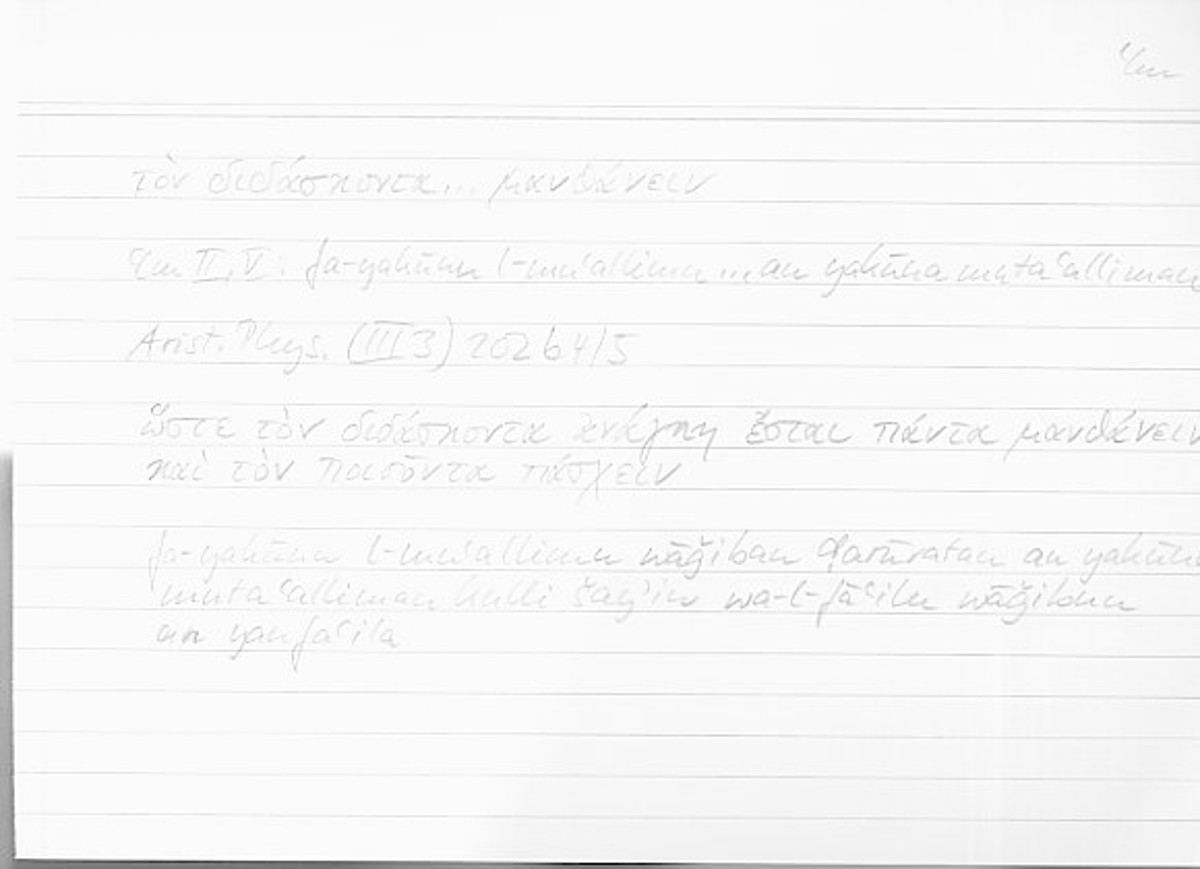 ʿlm
τὸν διδάσκοντα... μανθάνειν
ʿlm II, V: fa-yakūnu l-muʿallimu ... an yakūna mutaʿalliman
Arist. Phys. (III 3) 202 b 4/5
ὥστε τὸν διδάσκοντα ἀνάγκη ἔσται πάντα μανθάνειν
καὶ τὸν ποιοῦντα πάσχειν
fa-yakūnu l-muʿallimu wāǧiban ḍarūratan an yakūna
mutaʿalliman kulli šayʾin wa-l-fāʿilu wāǧibun
an yanfaʿila